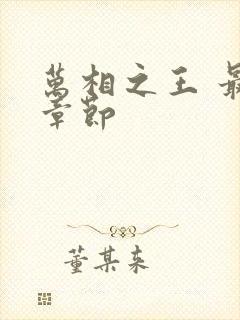 萬相之王 最
章節
董某来